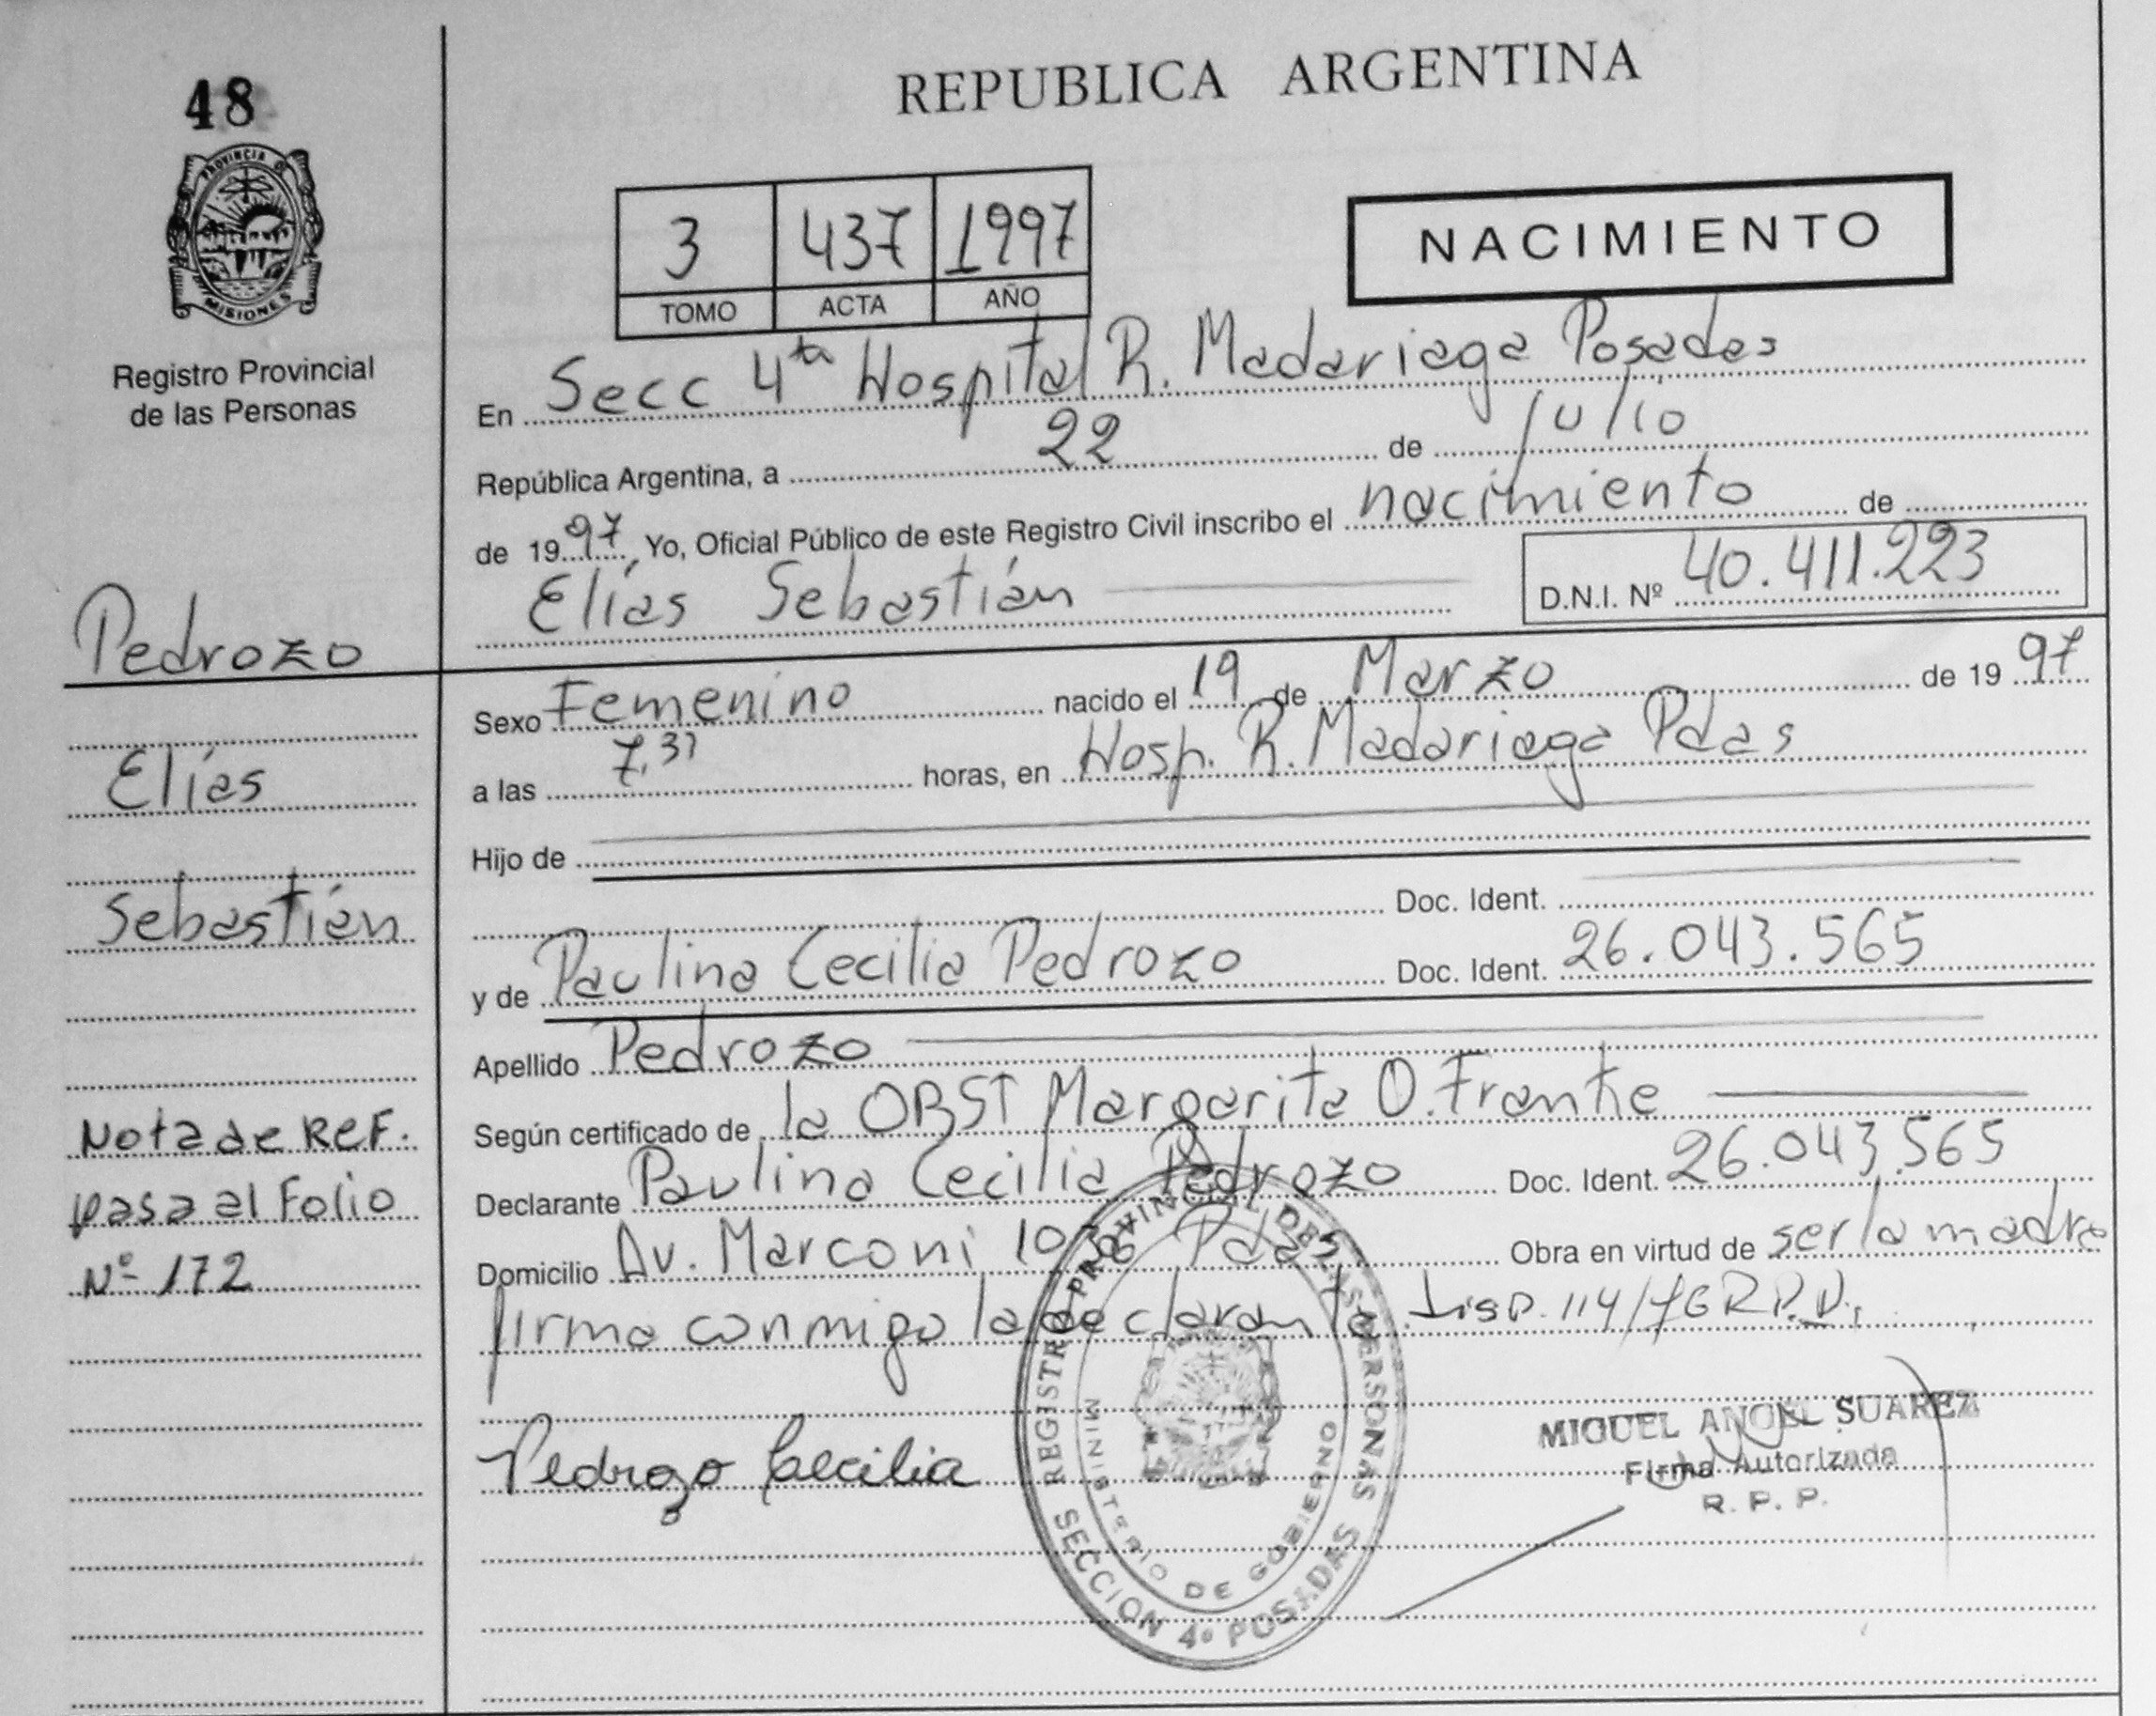 48
PROVINCIA DE
MISIONES
Registro Provincial
de las Personas
REPUBLICA ARGENTINA
3 437 1997
TOMO ACTA AÑO
NACIMIENTO
En Secc 4ta Hospital R. Madariaga Posadas
República Argentina, a 22 de Julio
de 1997, Yo, Oficial Público de este Registro Civil inscribo el nacimiento de
Elías Sebastián
D.N.I. Nº 40.411.223
Pedrozo
Elías
Sebastián
Nota de REF.
pasa al Folio
Nº 172
Sexo Femenino nacido el 19 de Marzo de 1997
a las 7,31 horas, en Hosp. R. Madariaga Pdas
Hijo de
Doc. Ident.
y de Paulina Cecilia Pedrozo Doc. Ident. 26.043.565
Apellido Pedrozo
Según certificado de la OBST Margarita O. Franke
Declarante Paulina Cecilia Pedrozo Doc. Ident. 26.043.565
Domicilio Av. Marconi Pdas Obra en virtud de ser la madre
firma conmigo la declarante. Disp. 114/76 R.P.P.
Pedrozo Cecilia
REGISTRO PROVINCIAL DE LAS PERSONAS
MINISTERIO DE GOBIERNO
SECCION 4º POSADAS
MIGUEL ANGEL SUAREZ
Firma Autorizada
R. P. P.